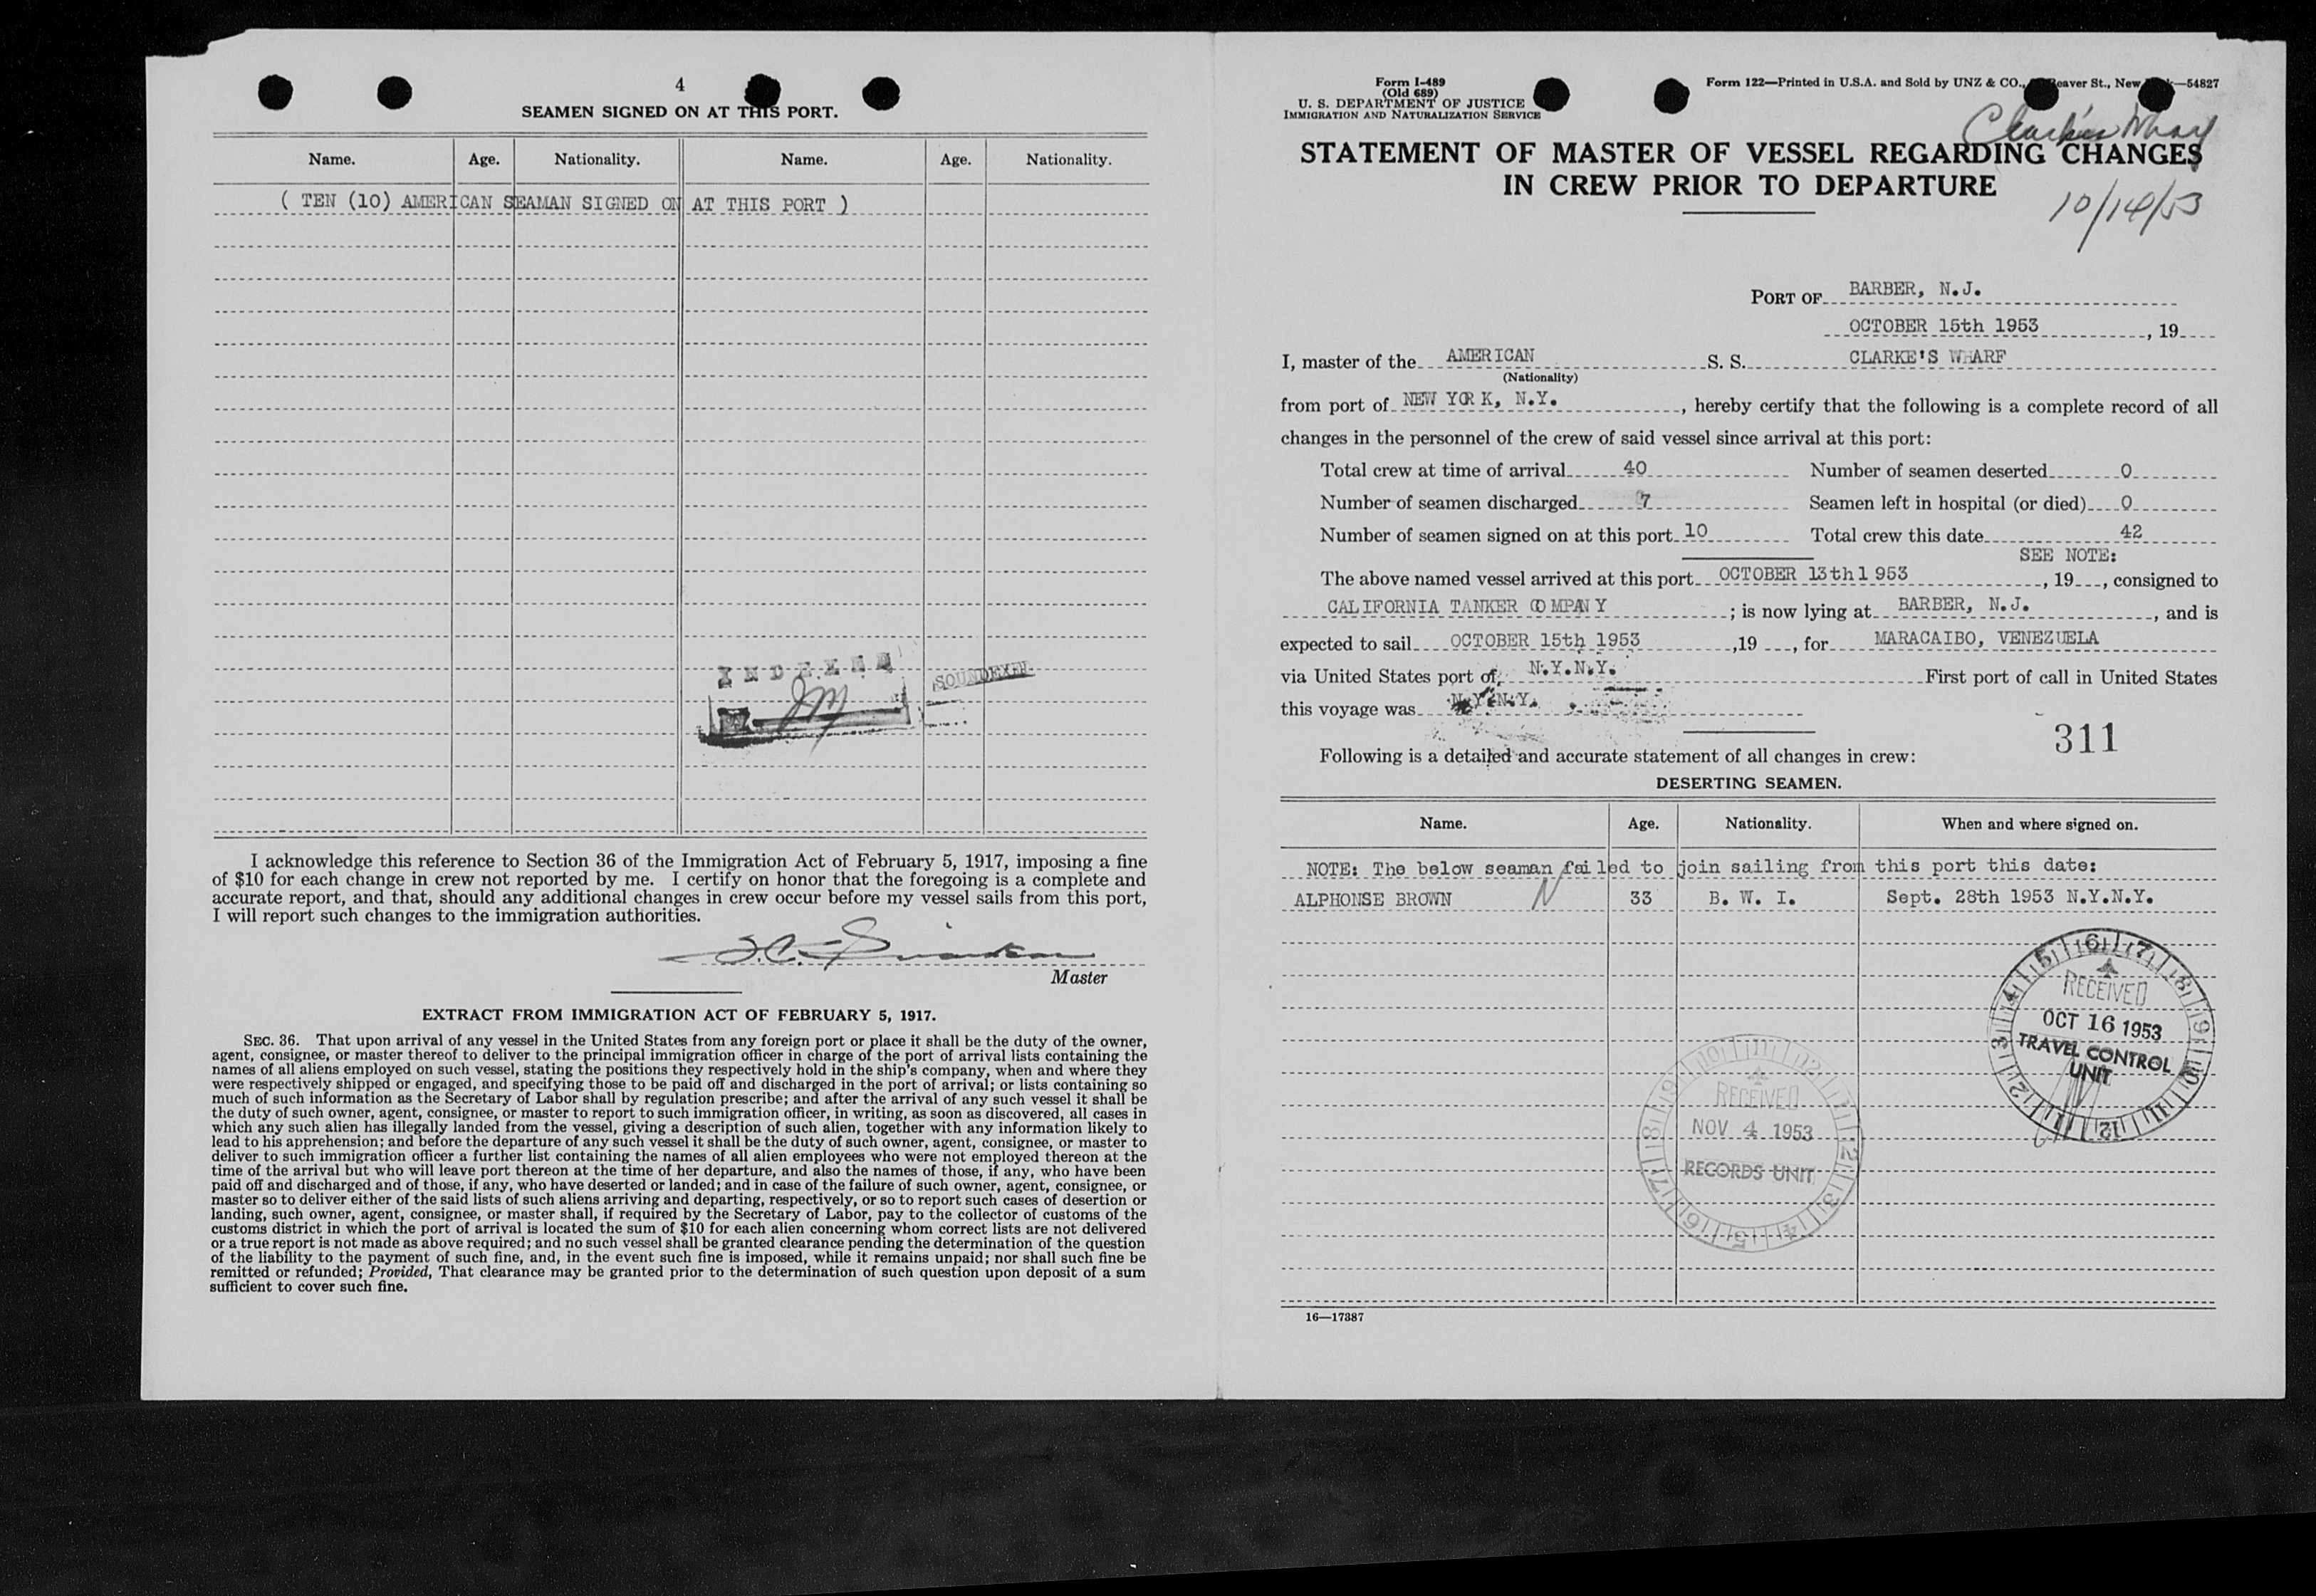 4
SEAMEN SIGNED ON AT THIS PORT.
Name. Age. Nationality. Name. Age. Nationality.
( TEN (10) AMERICAN SEAMAN SIGNED ON AT THIS PORT )
INDEXED
SOUNDEXED
JM
I acknowledge this reference to Section 36 of the Immigration Act of February 5, 1917, imposing a fine
of $10 for each change in crew not reported by me. I certify on honor that the foregoing is a complete and
accurate report, and that, should any additional changes in crew occur before my vessel sails from this port,
I will report such changes to the immigration authorities.
Master
EXTRACT FROM IMMIGRATION ACT OF FEBRUARY 5, 1917.
SEC. 36. That upon arrival of any vessel in the United States from any foreign port or place it shall be the duty of the owner,
agent, consignee, or master thereof to deliver to the principal immigration officer in charge of the port of arrival lists containing the
names of all aliens employed on such vessel, stating the positions they respectively hold in the ship's company, when and where they
were respectively shipped or engaged, and specifying those to be paid off and discharged in the port of arrival; or lists containing so
much of such information as the Secretary of Labor shall by regulation prescribe; and after the arrival of any such vessel it shall be
the duty of such owner, agent, consignee, or master to report to such immigration officer, in writing, as soon as discovered, all cases in
which any such alien has illegally landed from the vessel, giving a description of such alien, together with any information likely to
lead to his apprehension; and before the departure of any such vessel it shall be the duty of such owner, agent, consignee, or master to
deliver to such immigration officer a further list containing the names of all alien employees who were not employed thereon at the
time of the arrival but who will leave port thereon at the time of her departure, and also the names of those, if any, who have been
paid off and discharged and of those, if any, who have deserted or landed; and in case of the failure of such owner, agent, consignee, or
master so to deliver either of the said lists of such aliens arriving and departing, respectively, or so to report such cases of desertion or
landing, such owner, agent, consignee, or master shall, if required by the Secretary of Labor, pay to the collector of customs of the
customs district in which the port of arrival is located the sum of $10 for each alien concerning whom correct lists are not delivered
or a true report is not made as above required; and no such vessel shall be granted clearance pending the determination of the question
of the liability to the payment of such fine, and, in the event such fine is imposed, while it remains unpaid; nor shall such fine be
remitted or refunded; Provided, That clearance may be granted prior to the determination of such question upon deposit of a sum
sufficient to cover such fine.
Form I-489
(Old 689)
U. S. DEPARTMENT OF JUSTICE
IMMIGRATION AND NATURALIZATION SERVICE
Form 122—Printed in U.S.A. and Sold by UNZ & CO., eaver St., New —54827
Clarke's Wharf
STATEMENT OF MASTER OF VESSEL REGARDING CHANGES
IN CREW PRIOR TO DEPARTURE
10/14/53
PORT OF BARBER, N.J.
OCTOBER 15th 1953, 19
I, master of the AMERICAN S. S. CLARKE'S WHARF
(Nationality)
from port of NEW YORK, N.Y., hereby certify that the following is a complete record of all
changes in the personnel of the crew of said vessel since arrival at this port:
Total crew at time of arrival 40 Number of seamen deserted 0
Number of seamen discharged 7 Seamen left in hospital (or died) 0
Number of seamen signed on at this port 10 Total crew this date 42
SEE NOTE:
The above named vessel arrived at this port OCTOBER 13th1953, 19, consigned to
CALIFORNIA TANKER COMPANY; is now lying at BARBER, N.J., and is
expected to sail OCTOBER 15th 1953, 19, for MARACAIBO, VENEZUELA
via United States port of N.Y.N.Y. First port of call in United States
this voyage was N.Y.N.Y.
311
Following is a detailed and accurate statement of all changes in crew:
DESERTING SEAMEN.
Name. Age. Nationality. When and where signed on.
NOTE: The below seaman failed to join sailing from this port this date:
ALPHONSE BROWN N 33 B. W. I. Sept. 28th 1953 N.Y.N.Y.
RECEIVED
OCT 16 1953
TRAVEL CONTROL
UNIT
RECEIVED
NOV 4 1953
RECORDS UNIT
16—17387